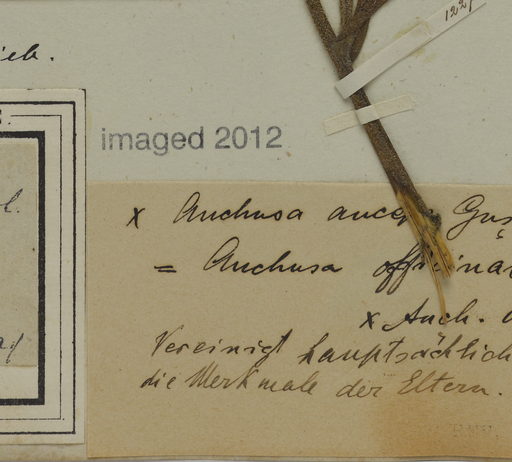 ieb.
122
imaged 2012
x Anchusa Guş
= Anchusa
x Anch.
Vereinigt hauptsächlich
die Merkmale der Eltern.